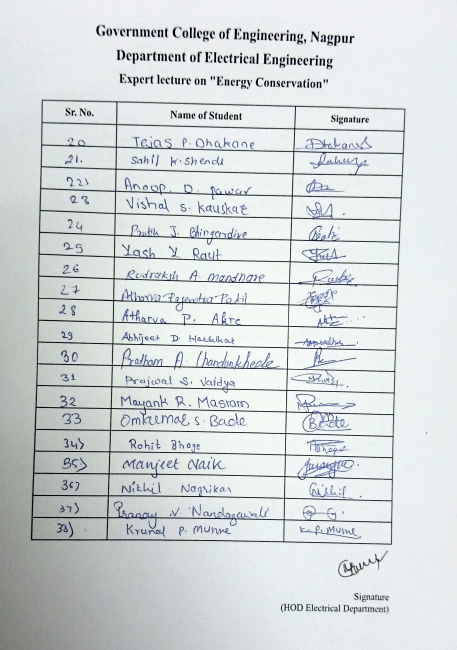 Government College of Engineering, Nagpur
Department of Electrical Engineering
Expert lecture on "Energy Conservation"
Sr. No. Name of Student Signature
20 Tejas P. Dhakane
21. Sahil K. Shende
22) Anoop. D. Pawar
23 Vishal S. Kauskar
24 Pratik J. Bhingardive
25 Yash Y Raut
26 Rudraksh A. Mandhare
27 Atharva Rajendra Patil
28 Atharva P. Akre
29 Abhijeet D.
30 Pratham A. Chandankhede
31 Prajwal S. Vaidya
32 Mayank R. Masram
33 Omkumar S. Bade Bade
34) Rohit Bhoge
35) Manjeet Naik
36) Nikhil Nagrikar Nikhil
37) Pranay .V
38) Krunal P. Munne K.P. Munne
Signature
(HOD Electrical Department)